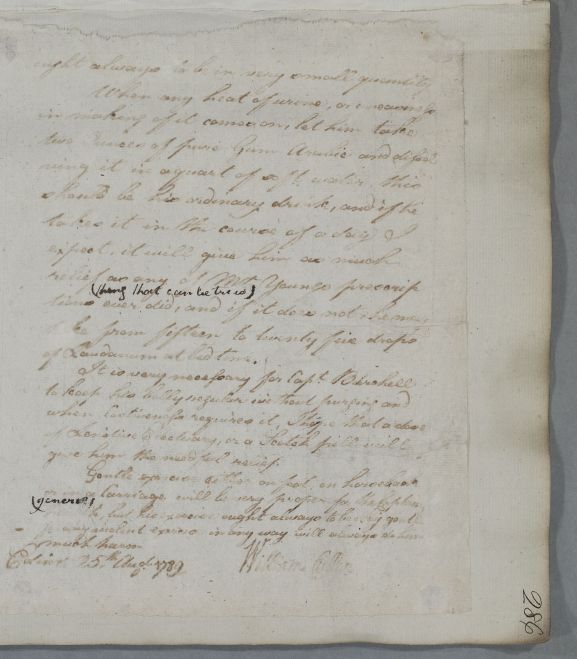 ought always to be in very small quantity
When any heat of urine, or uneasiness
in making of it comes on, let him take
two Ounces of pure Gum Arabic and dissol
ving it in a quart of soft water, this
should be his ordinary drink, and if he
takes it in the course of a day I
expect, it will give him as much
relief as any of Mr Youngs prescrip
(thing that can be tried)
tions ever did, and if it does not
be from fifteen to twenty five drops
of Laudanum at bed time.
It is very necessary for Capt. Birchell
to keep his belly regular without purging and
when Costiveness requires it, I hope that a dose
of Lenitive Electuary, or a Scotch pill will
give him the needful relief.
Gentle exercise either on foot on horseback
or in a Carriage, will be very proper for the Captain
(general)
but his exercise ought always to be very gentle
any violent exercise in any way will always do him
much harm
Edinr. 25th Augt. 1789 William Cullen
286